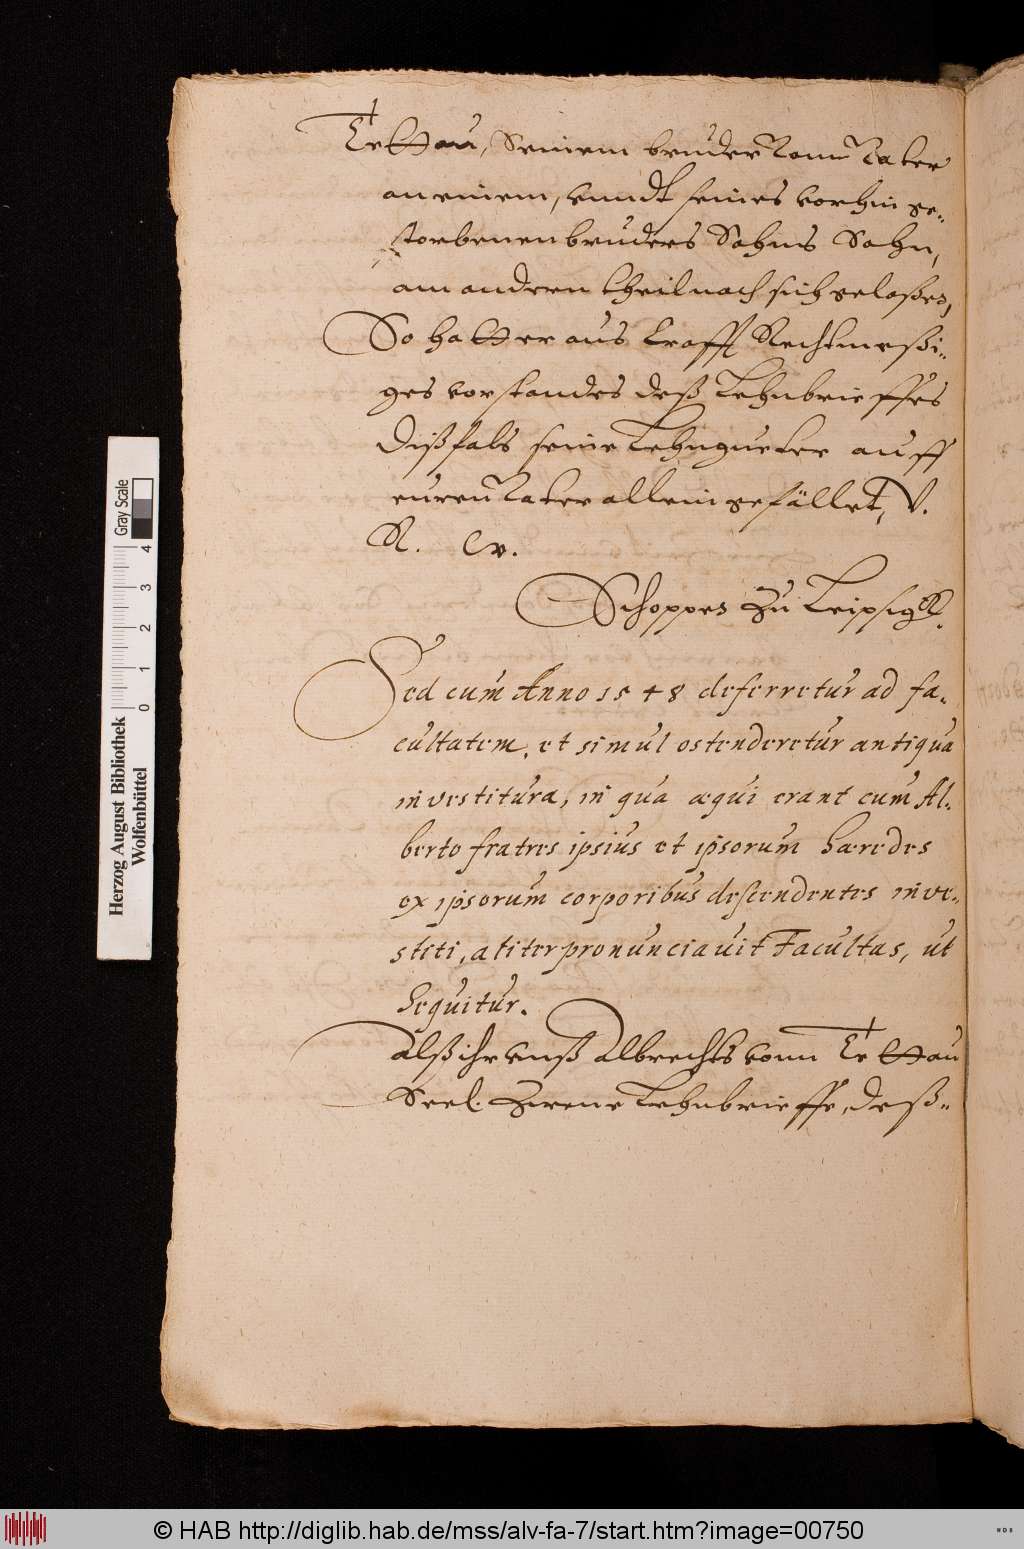 Tettau, Seinem bruder Vonn Vater
an einem, vnndt seines vorhin ge-
storbenen bruders Sohns Sohn,
am andern theil nach sich gelaßen,
So hatt er aus krafft Rechtmeßi-
ges vorstandes deß Lehnbrieffes
dißfals seine Lehngueter auff
euren Vater allein gefället, V.
R. W.
Schoppen zu Leipsigk.
Sed cum Anno 1548 deferretur ad fa-
cultatem, et simul ostenderetur antiqua
investitura, in qua aequi erant cum Al-
berto fratres ipsius et ipsorum haeredes
ex ipsorum corporibus descendentes inve-
stiti, aliter pronunciauit Facultas, ut
sequitur.
Alß ihr vnß Albrechts vonn Tettau
Seel. Zwene Lehnbrieffe, deß-
Herzog August Bibliothek
Wolfenbüttel
0 1 2 3 4
Gray Scale
© HAB http://diglib.hab.de/mss/alv-fa-7/start.htm?image=00750